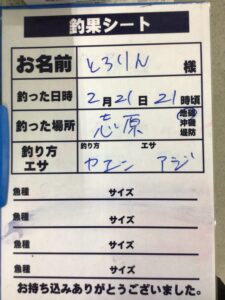 釣果シート
お名前 とろりん 様
釣った日時 2月21日21時頃
釣った場所 志原 地磯 沖磯 堤防
釣り方 エサ 釣り方 エサ
カエン アジ
魚種 サイズ
魚種 サイズ
魚種 サイズ
魚種 サイズ
お持ち込みありがとうございました。